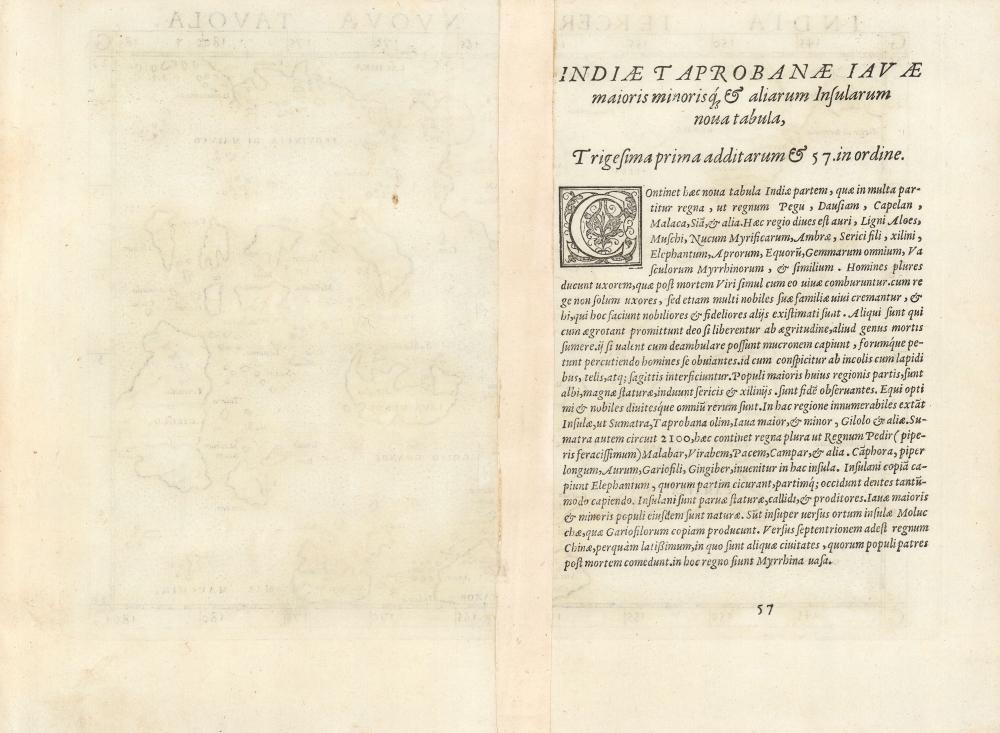 INDIÆ TAPROBANÆ IAVÆ
maioris minorisq́; & aliarum Inſularum
noua tabula,
Trigeſima prima additarum & 57. in ordine.
COntinet hæc noua tabula Indiæ partem, quæ in multa par-
titur regna, ut regnum Pegu, Dauſiam, Capelan,
Malaca, Siā, & alia. Hæc regio diues eſt auri, Ligni Aloes,
Muſchi, Nucum Myriſticarum, Ambræ, Serici fili, xilini,
Elephantum, Aprorum, Equorū, Gemmarum omnium, Va
ſculorum Myrrhinorum, & ſimilium. Homines plures
ducunt uxorem, quæ poſt mortem Viri ſimul cum eo uiuæ comburuntur. cum re
ge non ſolum uxores, ſed etiam multi nobiles ſuæ familiæ uiui cremantur, &
hi, qui hoc faciunt nobiliores & fideliores alijs exiſtimati ſunt. Aliqui ſunt qui
cum ægrotant promittunt deo ſi liberentur ab ægritudine, aliud genus mortis
ſumere. ij ſi ualent cum deambulare poſſunt mucronem capiunt, forumque pe-
tunt percutiendo homines ſe obuiantes. id cum conſpicitur ab incolis cum lapidi
bus, telis, atq; ſagittis interficiuntur. Populi maioris huius regionis partis, ſunt
albi, magnæ ſtaturæ, induunt ſericis & xilinijs. ſunt fidē obſeruantes. Equi opti
mi & nobiles diuiteſque omniū rerum ſunt. In hac regione innumerabiles extāt
Inſulæ, ut Sumatra, Taprobana olim, Iaua maior, & minor, Gilolo & aliæ. Su-
matra autem circuit 2100, hæc continet regna plura ut Regnum Pedir (pipe-
ris feraciſſimum) Malabar, Virabem, Pacem, Campar, & alia. Cāphora, piper
longum, Aurum, Gariofili, Gingiber, inuenitur in hac inſula. Inſulani copiā ca-
piunt Elephantum, quorum partim cicurant, partimq́; occidunt dentes tantū-
modo capiendo. Inſulani ſunt paruæ ſtaturæ, callidi, & proditores. Iauæ maioris
& minoris populi eiuſdem ſunt naturæ. Sūt inſuper uerſus ortum inſulæ Moluc
chæ, quæ Gariofilorum copiam producunt. Verſus ſeptentrionem adeſt regnum
Chinæ, perquàm latiſſimum, in quo ſunt aliquæ ciuitates, quorum populi patres
poſt mortem comedunt. in hoc regno fiunt Myrrhina uaſa.
57